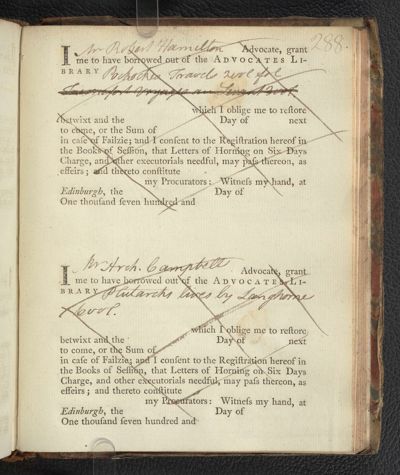 288.
I Mr Robert Hamilton Advocate, grant
me to have borrowed out of the ADVOCATES LI-
BRARY Pococke's Travels 2 vol fol
which I oblige me to reſtore
betwixt and the Day of next
to come, or the Sum of
in caſe of Failzie; and I conſent to the Regiſtration hereof in
the Books of Seſſion, that Letters of Horning on Six Days
Charge, and other executorials needful, may paſs thereon, as
effeirs; and thereto conſtitute
my Procurators: Witneſs my hand, at
Edinburgh, the Day of
One thouſand ſeven hundred and
I Mr Arch. Campbell Advocate, grant
me to have borrowed out of the ADVOCATES LI-
BRARY Plutarchs lives by Langhorne
vol.
which I oblige me to reſtore
betwixt and the Day of next
to come, or the Sum of
in caſe of Failzie; and I conſent to the Regiſtration hereof in
the Books of Seſſion, that Letters of Horning on Six Days
Charge, and other executorials needful, may paſs thereon, as
effeirs; and thereto conſtitute
my Procurators: Witneſs my hand, at
Edinburgh, the Day of
One thouſand ſeven hundred and